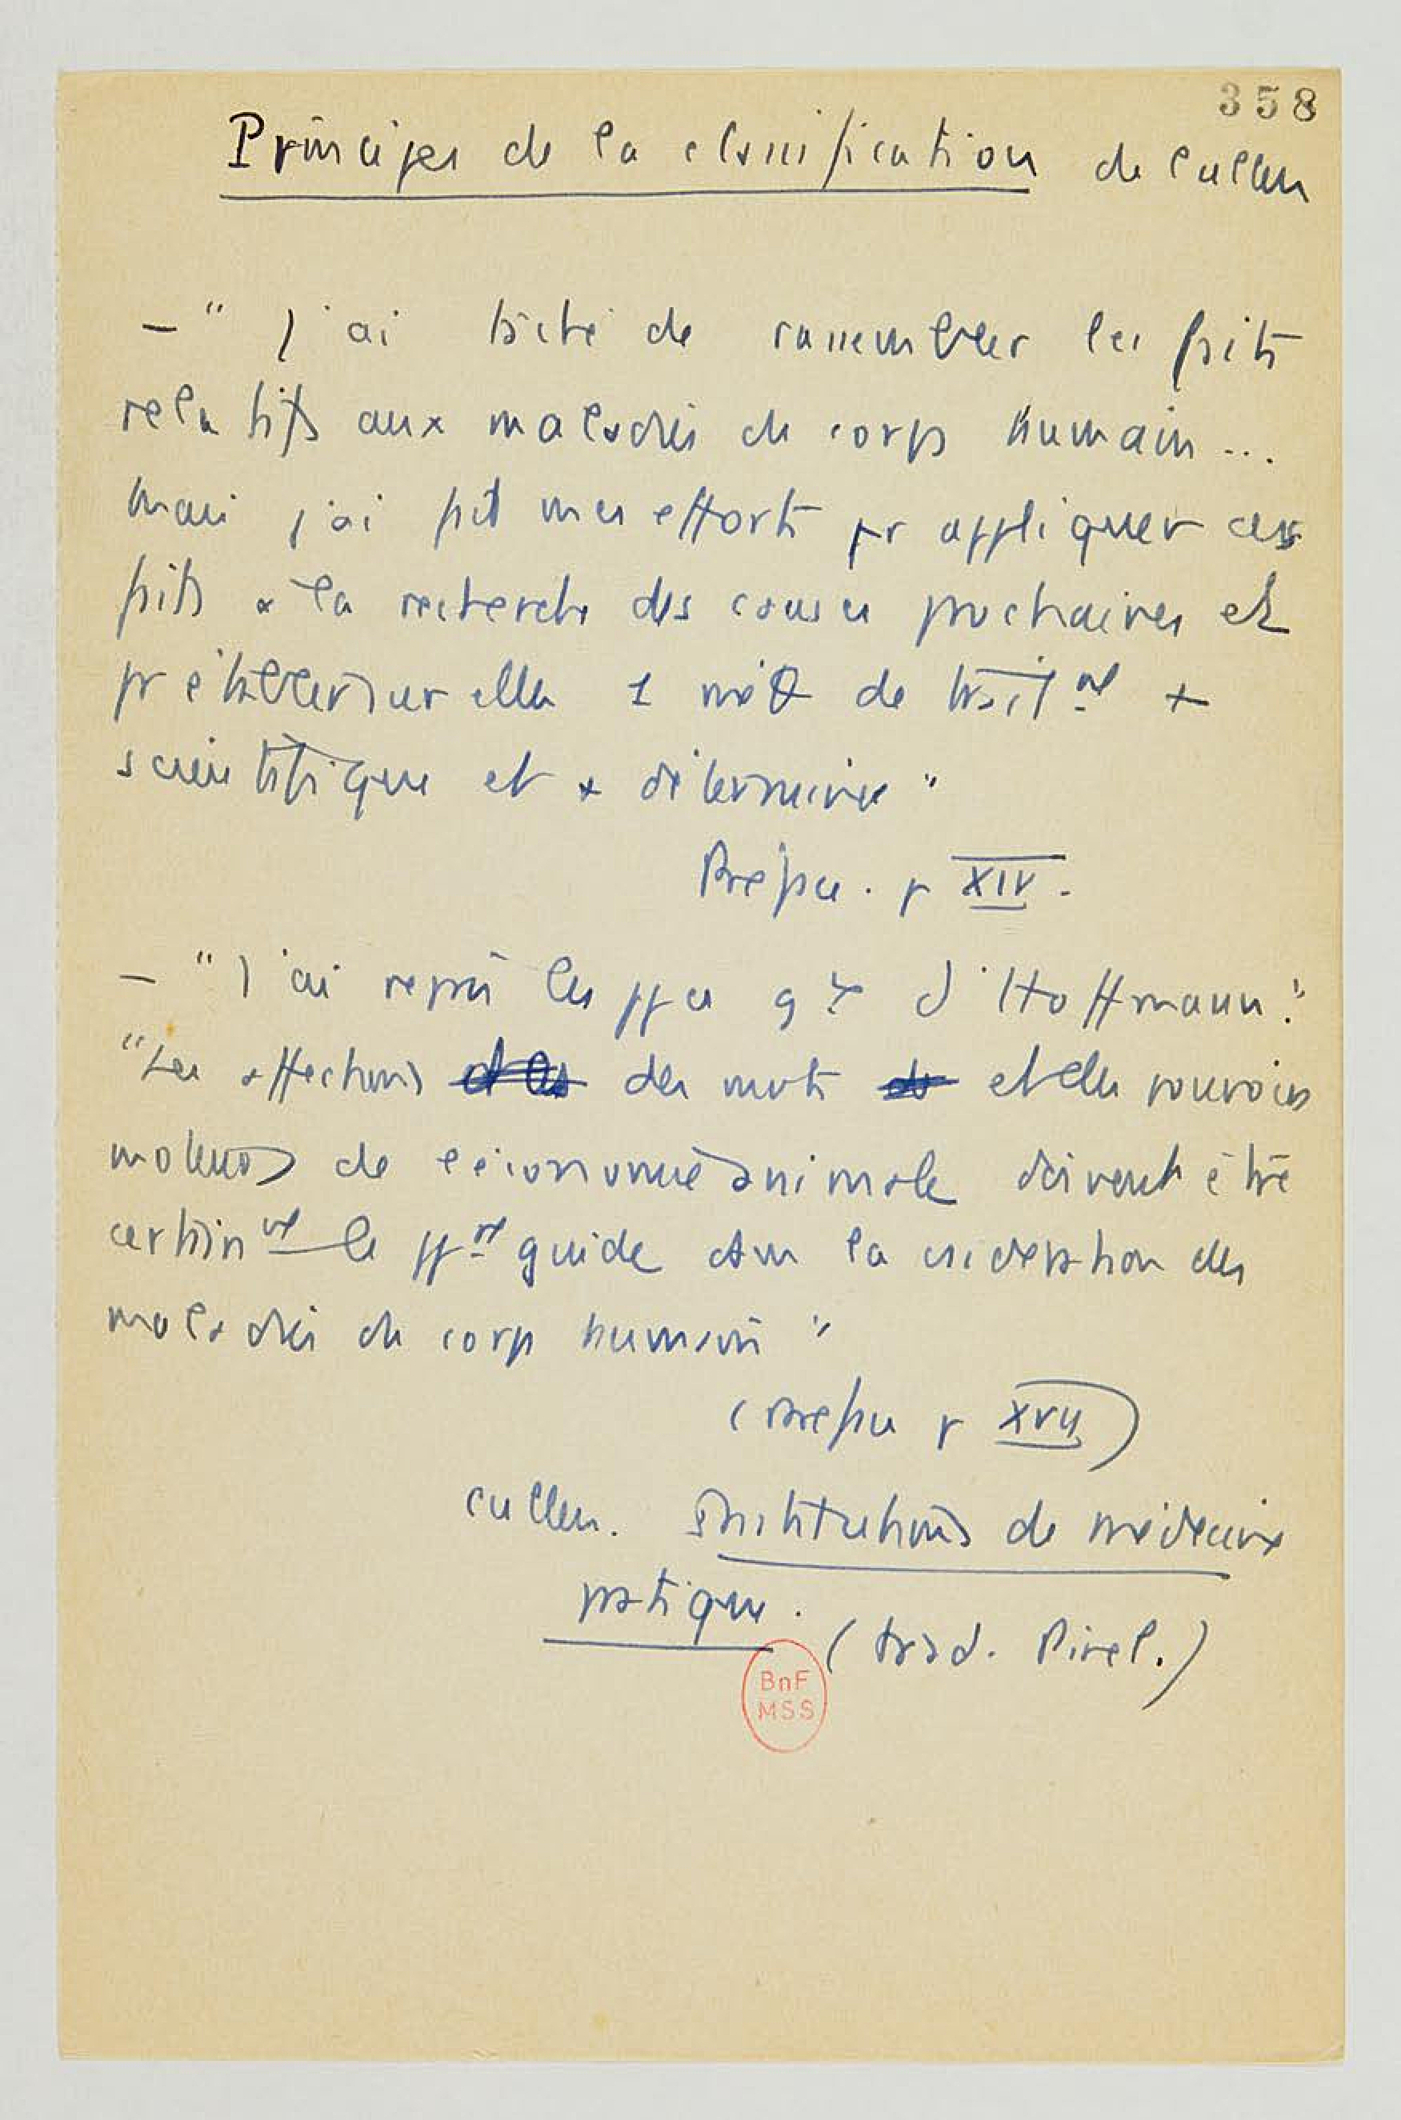 358
Principes de la classification de Cullen
— " J'ai tâché de rassembler les faits
relatifs aux maladies du corps humain...
mais j'ai fait mes efforts pr appliquer ces
faits à la recherche des causes prochaines et
pr établir sur elles 1 méθ de trait nt +
scientifique et + déterminée "
Préface. p XIV.
— " J'ai repris les ppes gx d'Hoffmann :
" Les affections des mvts et des pouvoirs
moteurs de l'économie animale doivent être
certain nt le pp al guide dans la csidération des
maladies du corps humain "
(Préface p XVII)
Cullen. Institutions de médecine
pratique. (trad. Pinel.)
BnF
MSS